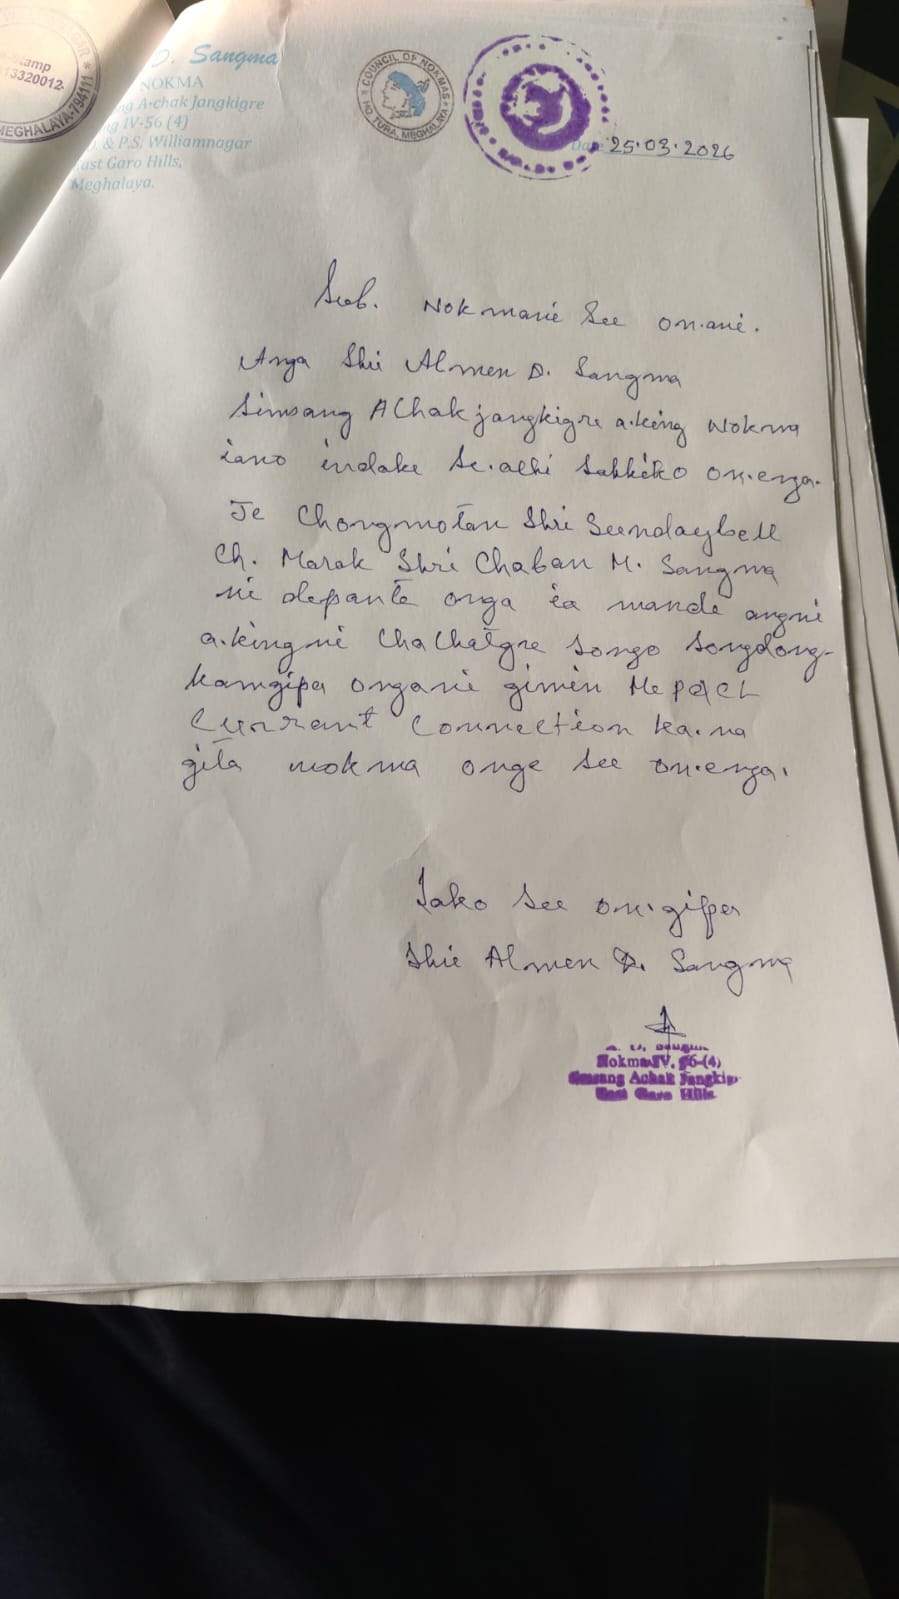 D. Sangma
NOKMA
A·chak Jangkigre
IV-56 (4)
& P.S. Williamnagar
East Garo Hills,
Meghalaya.
Stamp
13320012
MEGHALAYA-794111
COUNCIL OF NOKMAS
HQ. TURA, MEGHALAYA
Date 25.03.2026
Sub. Nokmanie See on.ani.
Anga Shri Almen D. Sangma
Simsang AChakjangkigre a.king Nokma
iano indake se.achi sakkiko on.enga.
Je Chongmotan Shri Sundaybell
Ch. Marak Shri Chaban M. Sangma
ni depante onga ia mande angni
a.kingni Chachatgre songo songdong-
kamgipa ongani gimin MePdCL
Currant Connection ka.na
gita nokma onge see on.enga.
Iako See on.gipa
Shri Almen D. Sangma
Nokma IV, 56-(4)
Achak Jangkigre
East Garo Hills